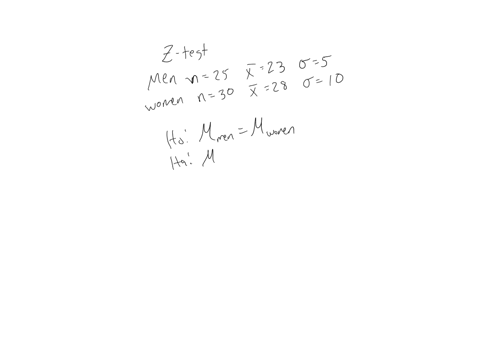 Z-test
Men n=25 x̄=23 σ=5
women n=30 x̄=28 σ=10
H₀: μ_men = μ_women
Ha: μ